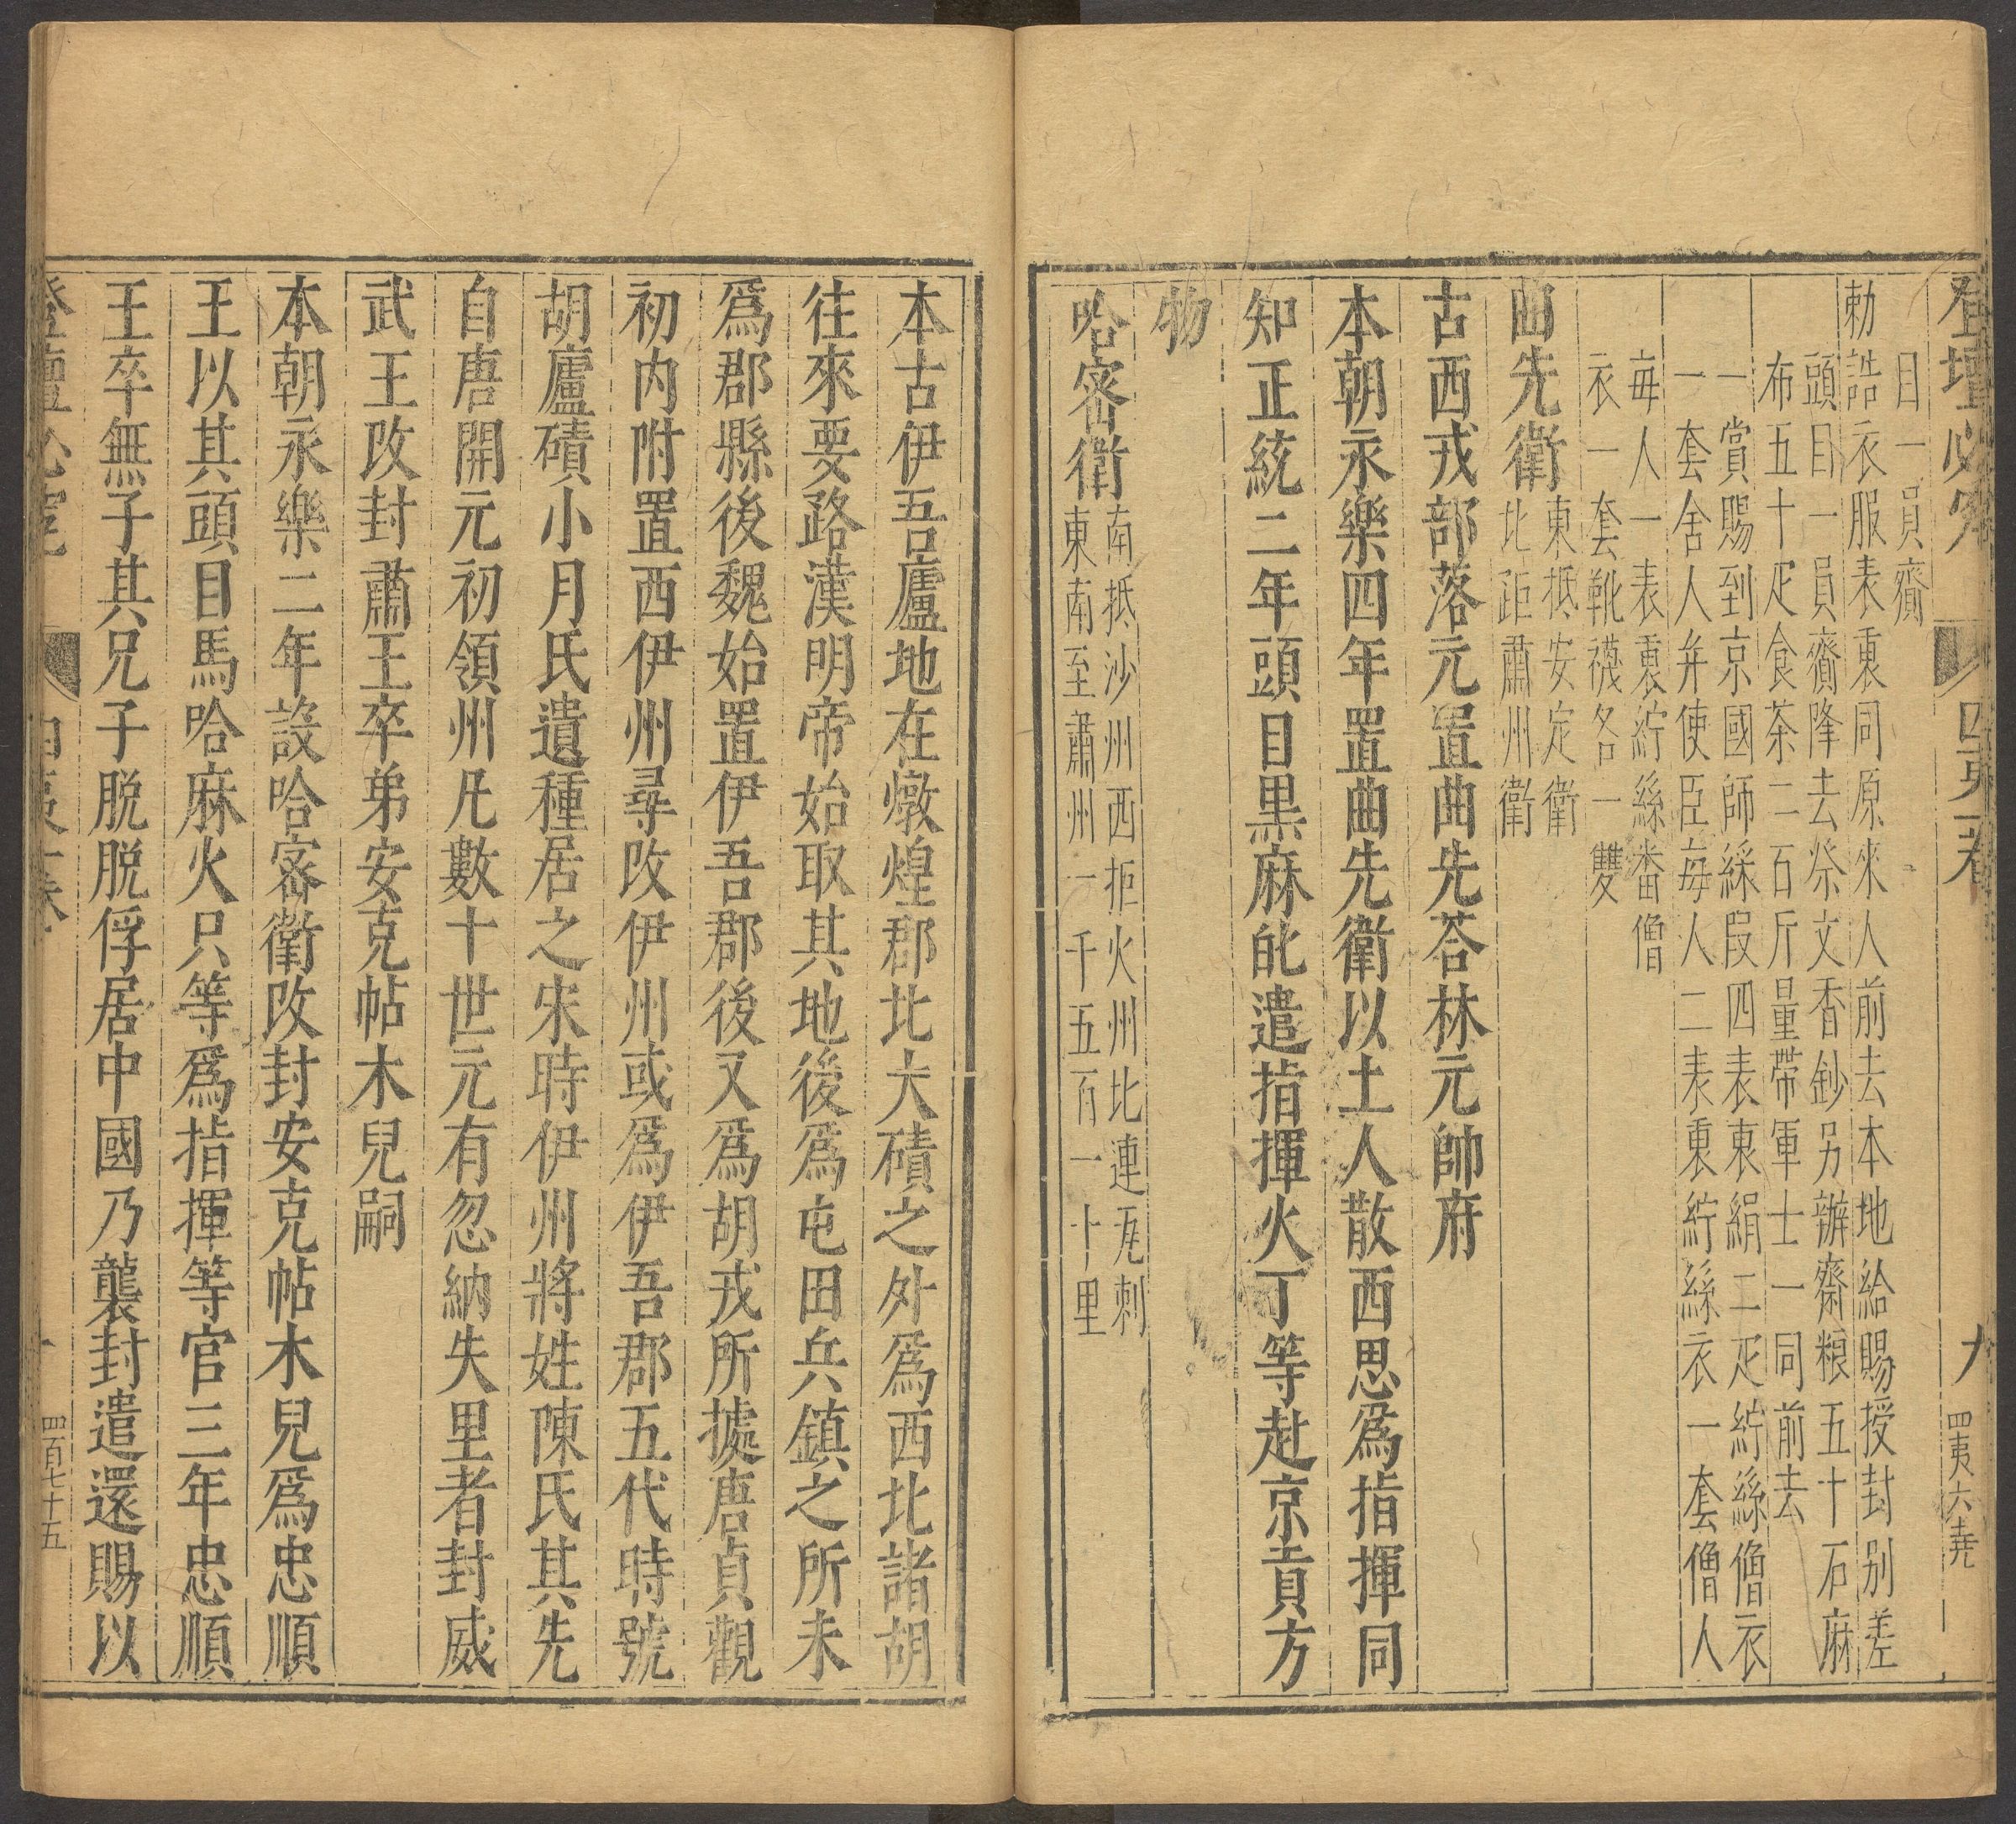 登壇必究 四夷一卷 九 四夷六堯
目一員齎
勅誥衣服表裏同原來人前去本地給賜授封别差
頭目一員齎降去祭文香鈔另辦齋粮五十石麻
布五十疋食茶二百斤量帶軍士一同前去
一賞賜到京國師綵叚四表裏絹二疋紵絲僧衣
一套舍人并使臣毎人二表裏紵絲衣一套僧人
毎人一表裏紵絲畨僧
衣一套靴襪各一雙
曲先衛東抵安定衛
北距肅州衛
古西戎部落元置曲先荅林元帥府
本朝永樂四年置曲先衛以土人散西思爲指揮同
知正統二年頭目黒麻的遣指揮火丁等赴京貢方
物
哈密衛南抵沙州西拒火州北連瓦刺
東南至肅州一千五百一十里
本古伊吾廬地在燉煌郡北大磧之外爲西北諸胡
往來要路漢明帝始取其地後爲屯田兵鎮之所未
爲郡縣後魏始置伊吾郡後又爲胡戎所據唐貞觀
初内附置西伊州尋改伊州或爲伊吾郡五代時號
胡廬磧小月氏遺種居之宋時伊州將姓陳氏其先
自唐開元初領州凡數十世元有忽納失里者封威
武王改封肅王卒弟安克帖木兒嗣
本朝永樂二年設哈密衛改封安克帖木兒爲忠順
王以其頭目馬哈麻火只等爲指揮等官三年忠順
王卒無子其兄子脱脱俘居中國乃襲封遣還賜以
登壇必究 四夷一卷 十 四百七十五